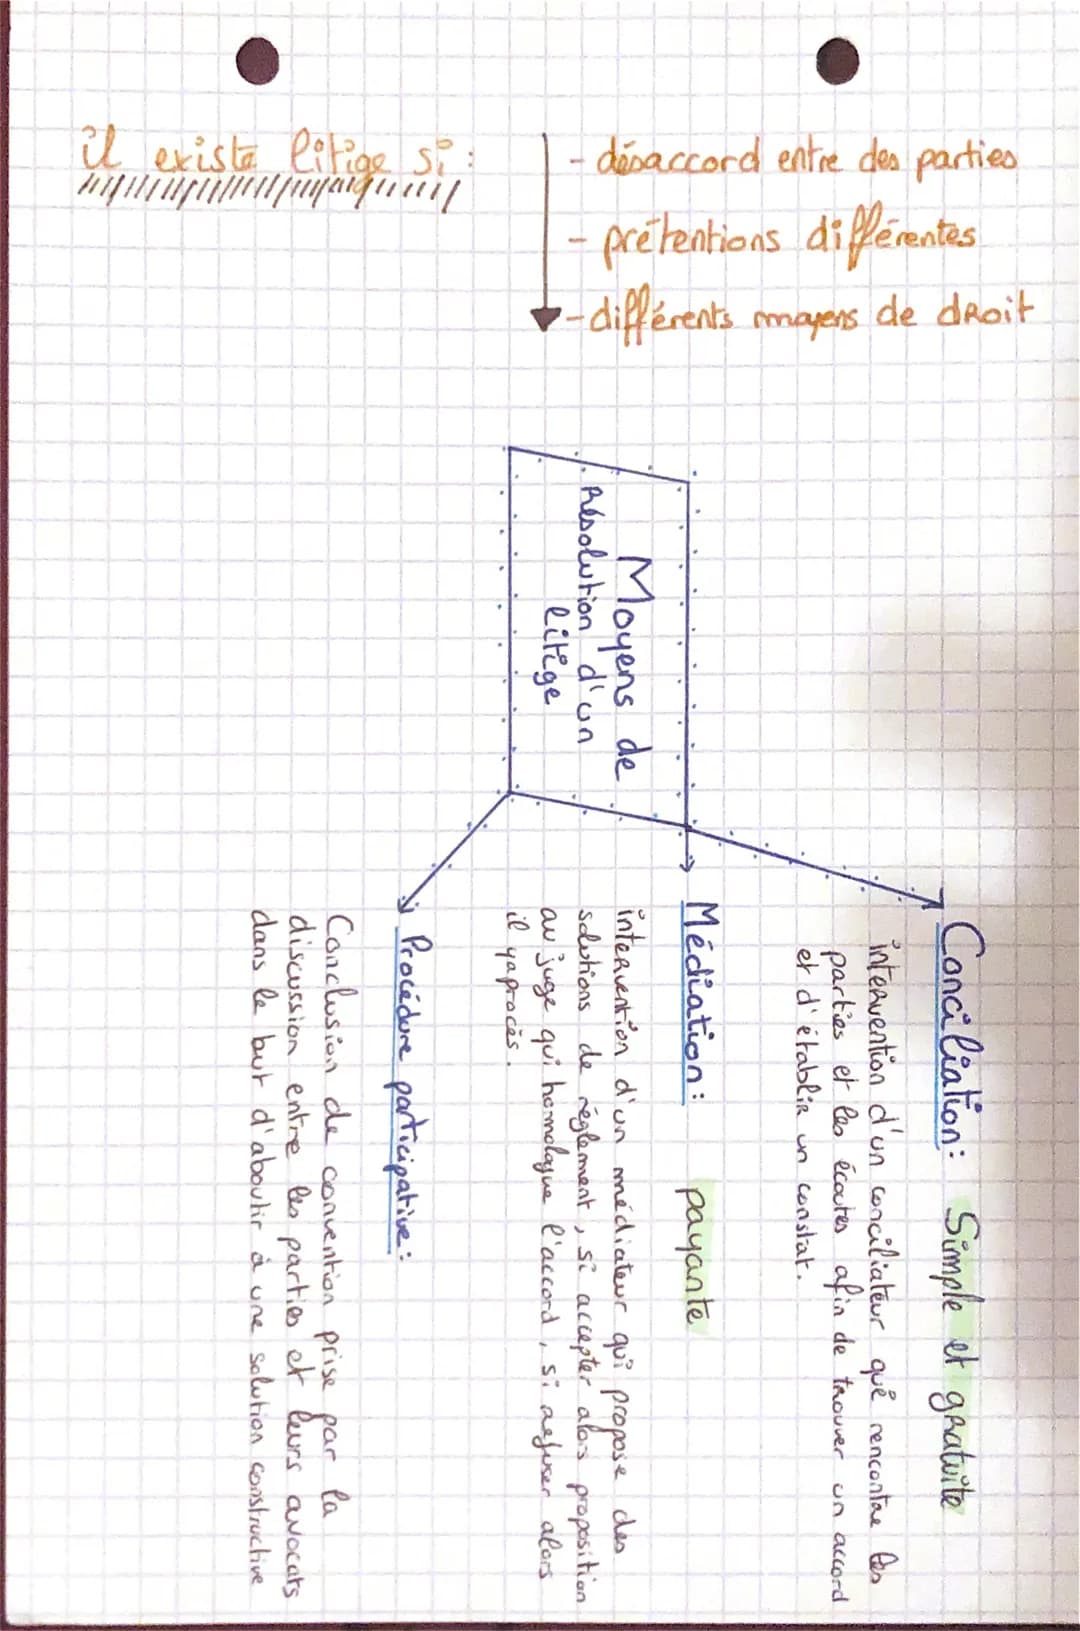 il existe litige si :
- désaccord entre des parties
- prétentions différentes
- différents moyens de droit
Moyens de
Résolution d'un
litige
Conciliation : Simple et gratuite
intervention d'un conciliateur qui rencontre les
parties et les écoutes afin de trouver un accord
et d'établir un constat.
Médiation : payante
intervention d'un médiateur qui propose des
solutions de réglement, si accepter alors proposition
au juge qui homologue l'accord, si refuser alors
il y a procès.
Procédure participative :
Conclusion de convention prise par la
discussion entre les parties et leurs avocats
dans le but d'aboutir à une solution constructive